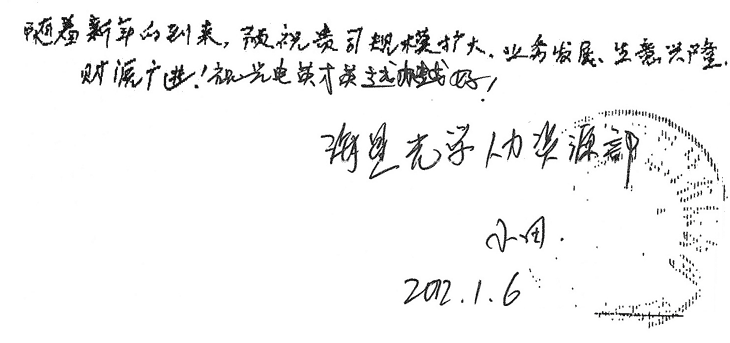 随着新年的到来，预祝贵司规模扩大、业务发展、生意兴隆、
财源广进！祝光电英才英越办越好！
海星光学人力资源部
小周.
2012.1.6